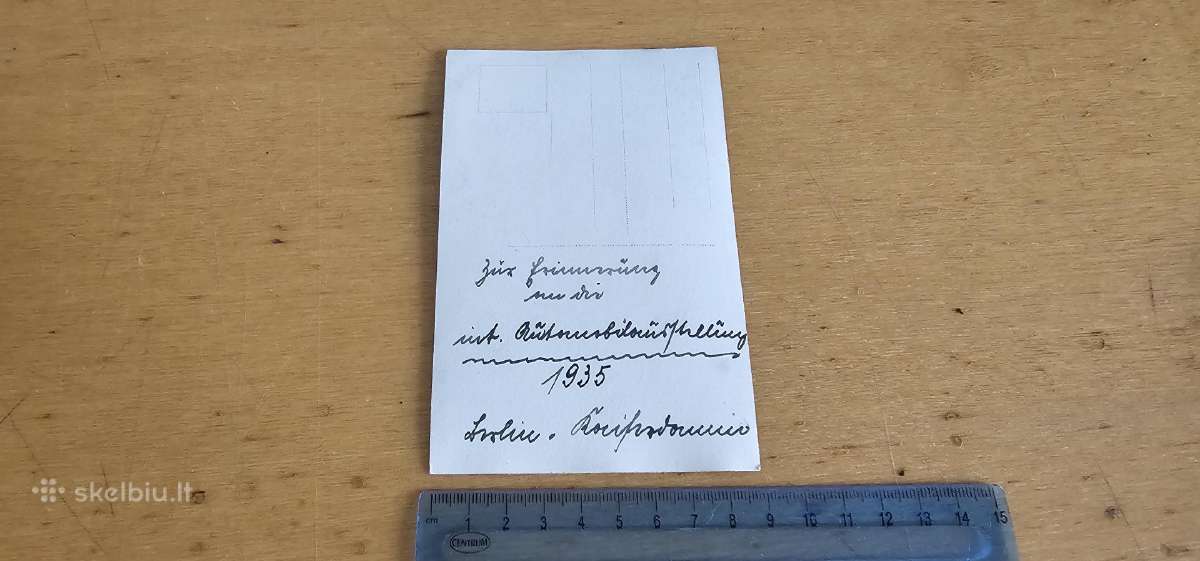 Zur Erinnerung
an die
int. Automobilausstellung
1935
Berlin. Kaiserdamm
cm 1 2 3 4 5 6 7 8 9 10 11 12 13 14 15
CENTRUM
skelbiu.lt